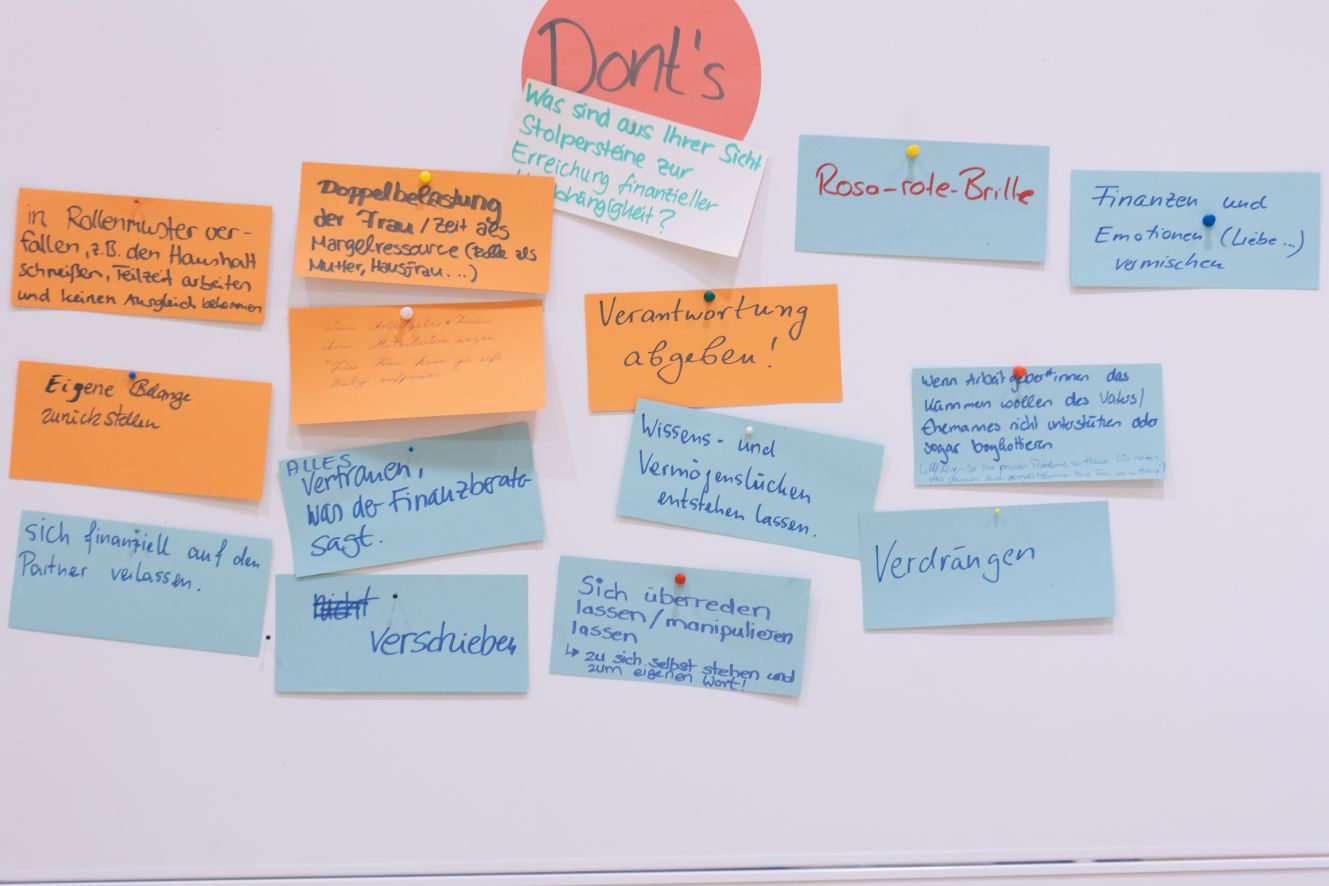 Dont's
Was sind aus Ihrer Sicht
Stolpersteine zur
Erreichung finanzieller
in Rollenmuster ver-
fallen, z.B. den Haushalt
schmeißen, Teilzeit arbeiten
und keinen Ausgleich bekommen
Doppelbelastung
der Frau / Zeit als
Mangelressource (Rolle als
Mutter, Hausfrau...)
Rosa-rote-Brille
Finanzen und
Emotionen (Liebe...)
vermischen
"Die Frau kann ja aufs
Baby aufpassen"
Verantwortung
abgeben!
Eigene Belange
zurückstellen
Wenn Arbeitgeber*innen das
Kümmern wollen des Vaters/
Ehemannes nicht unterstützen oder
sogar boykottieren
ALLES
Vertrauen,
was der Finanzberater
sagt.
Wissens- und
Vermögenslücken
entstehen lassen.
sich finanziell auf den
Partner verlassen.
Verdrängen
nicht
Verschieben
Sich überreden
lassen/manipulieren
lassen
↳ zu sich selbst stehen und
zum eigenen Wort!